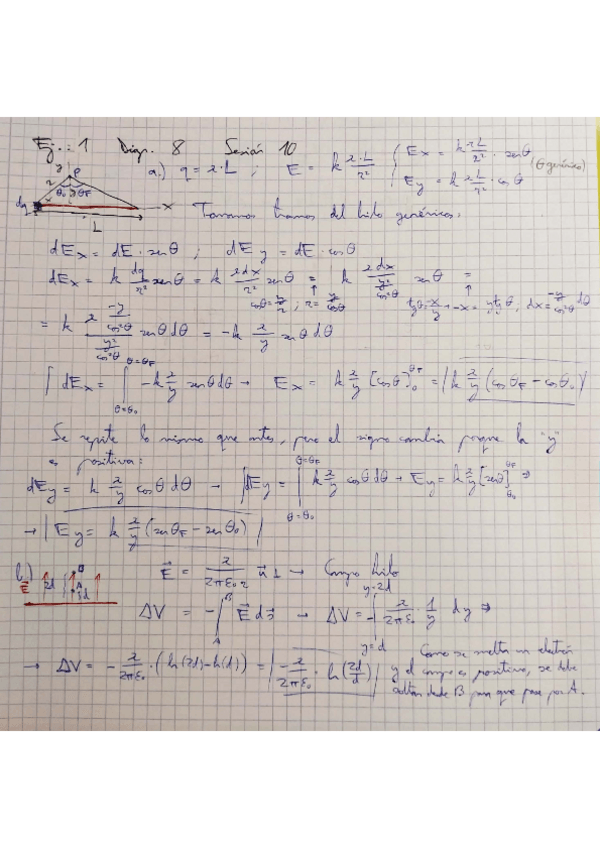 Ej.: 1 Diap. 8 Sesión 10
a.) q = λ·L ; E = k λ·L/r² { Ex = k λL/r² · senθ
Ey = k λL/r² · cosθ (θ genérico)
y P r θ₀ θF dq x L
Tomamos tramos del hilo genéricos.
dEx = dE · senθ ; dEy = dE · cosθ
dEx = k dq/r² senθ = k λdx/r² senθ = k λdx/(y²/cos²θ) senθ =
cosθ = y/r ; r = y/cosθ
= k λ (-y/cos²θ)/(y²/cos²θ) senθ dθ = -k λ/y senθ dθ
∫ dEx = ∫ -k λ/y senθ dθ → Ex = k λ/y [cosθ] = k λ/y (cosθF - cosθ₀)
θ=θF
θ=θ₀
Se repite lo mismo que antes, pero el signo cambia porque la "y"
es positiva:
dEy = k λ/y cosθ dθ → ∫dEy = ∫ k λ/y cosθ dθ → Ey = k λ/y [senθ] ⇒
θ=θF
θ=θ₀
→ Ey = k λ/y (senθF - senθ₀)
b.) E 2d B A d
E = λ/2πε₀r u⊥ → Campo hilo
ΔV = -∫ E ds → ΔV = -∫ λ/2πε₀ · 1/y dy ⇒
B
A
y=2d
y=d
→ ΔV = -λ/2πε₀ · (ln(2d) - ln(d)) = -λ/2πε₀ · ln(2d/d)
Como se suelta un electrón
y el campo es positivo, se debe
soltar desde B para que pase por A.